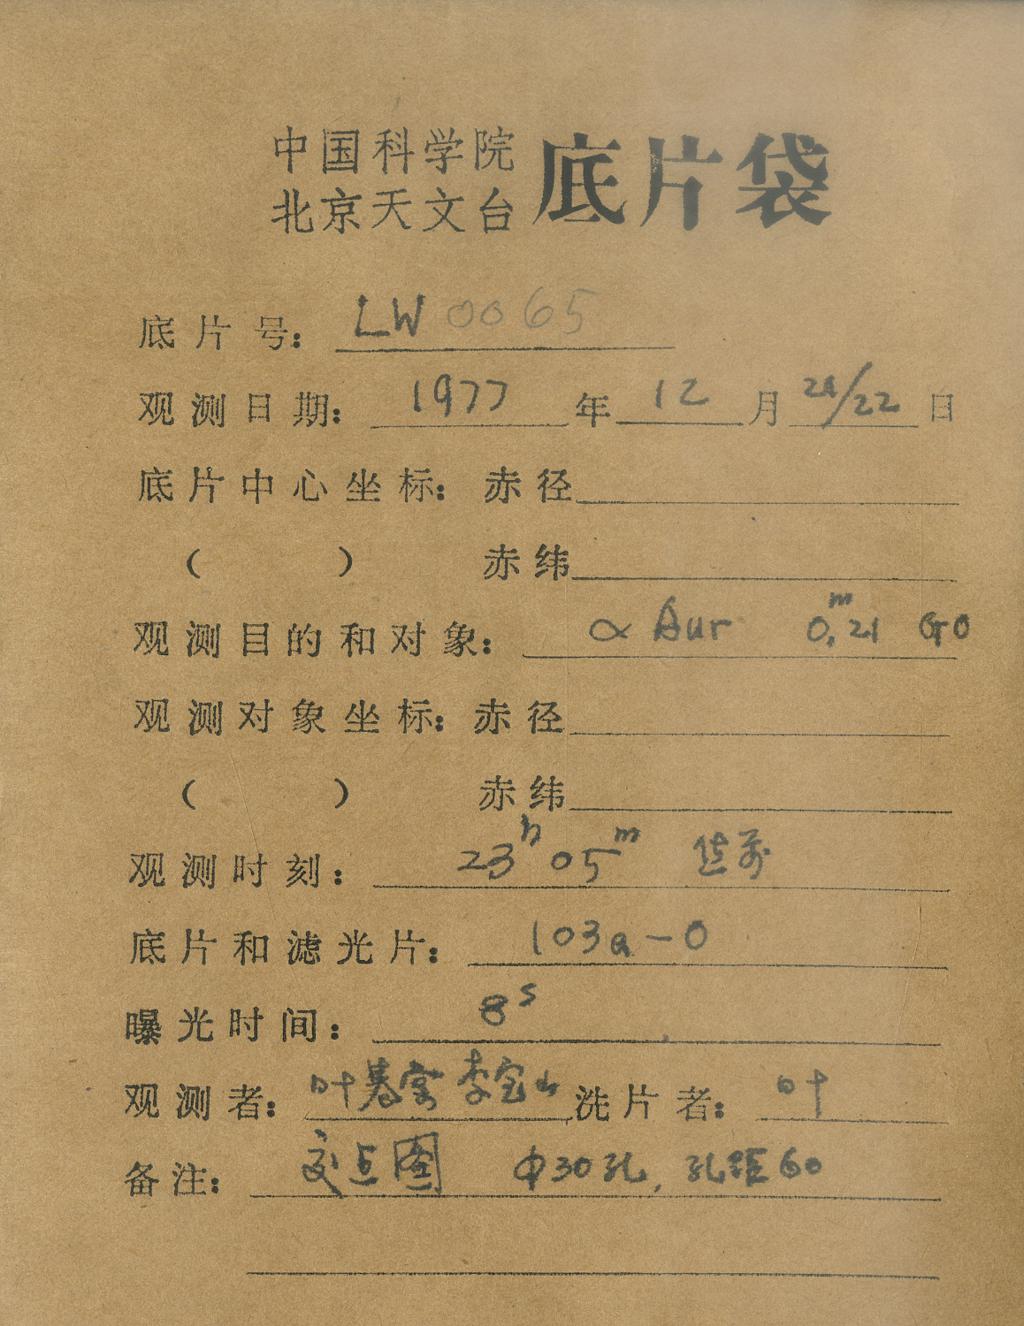 中国科学院
北京天文台
底片袋
底片号：LW 0065
观测日期：1977年12月21/22日
底片中心坐标：赤径
（ ） 赤纬
观测目的和对象：α Aur 0.ᵐ21 G0
观测对象坐标：赤径
（ ） 赤纬
观测时刻：23ʰ05ᵐ 焦前
底片和滤光片：103a-O
曝光时间：8ˢ
观测者：叶 李宝 洗片者：叶
备注：交点图 φ30孔，孔距60